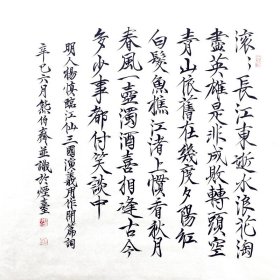 滚々長江東逝水浪花淘
盡英雄是非成敗轉頭空
青山依舊在幾度夕陽紅
白髮魚樵江渚上慣看秋月
春風一壺濁酒喜相逢古今
多少事都付笑談中
明人楊慎臨江仙三國演義用作開篇詞
辛巳六月熊伯齊並識於燈臺